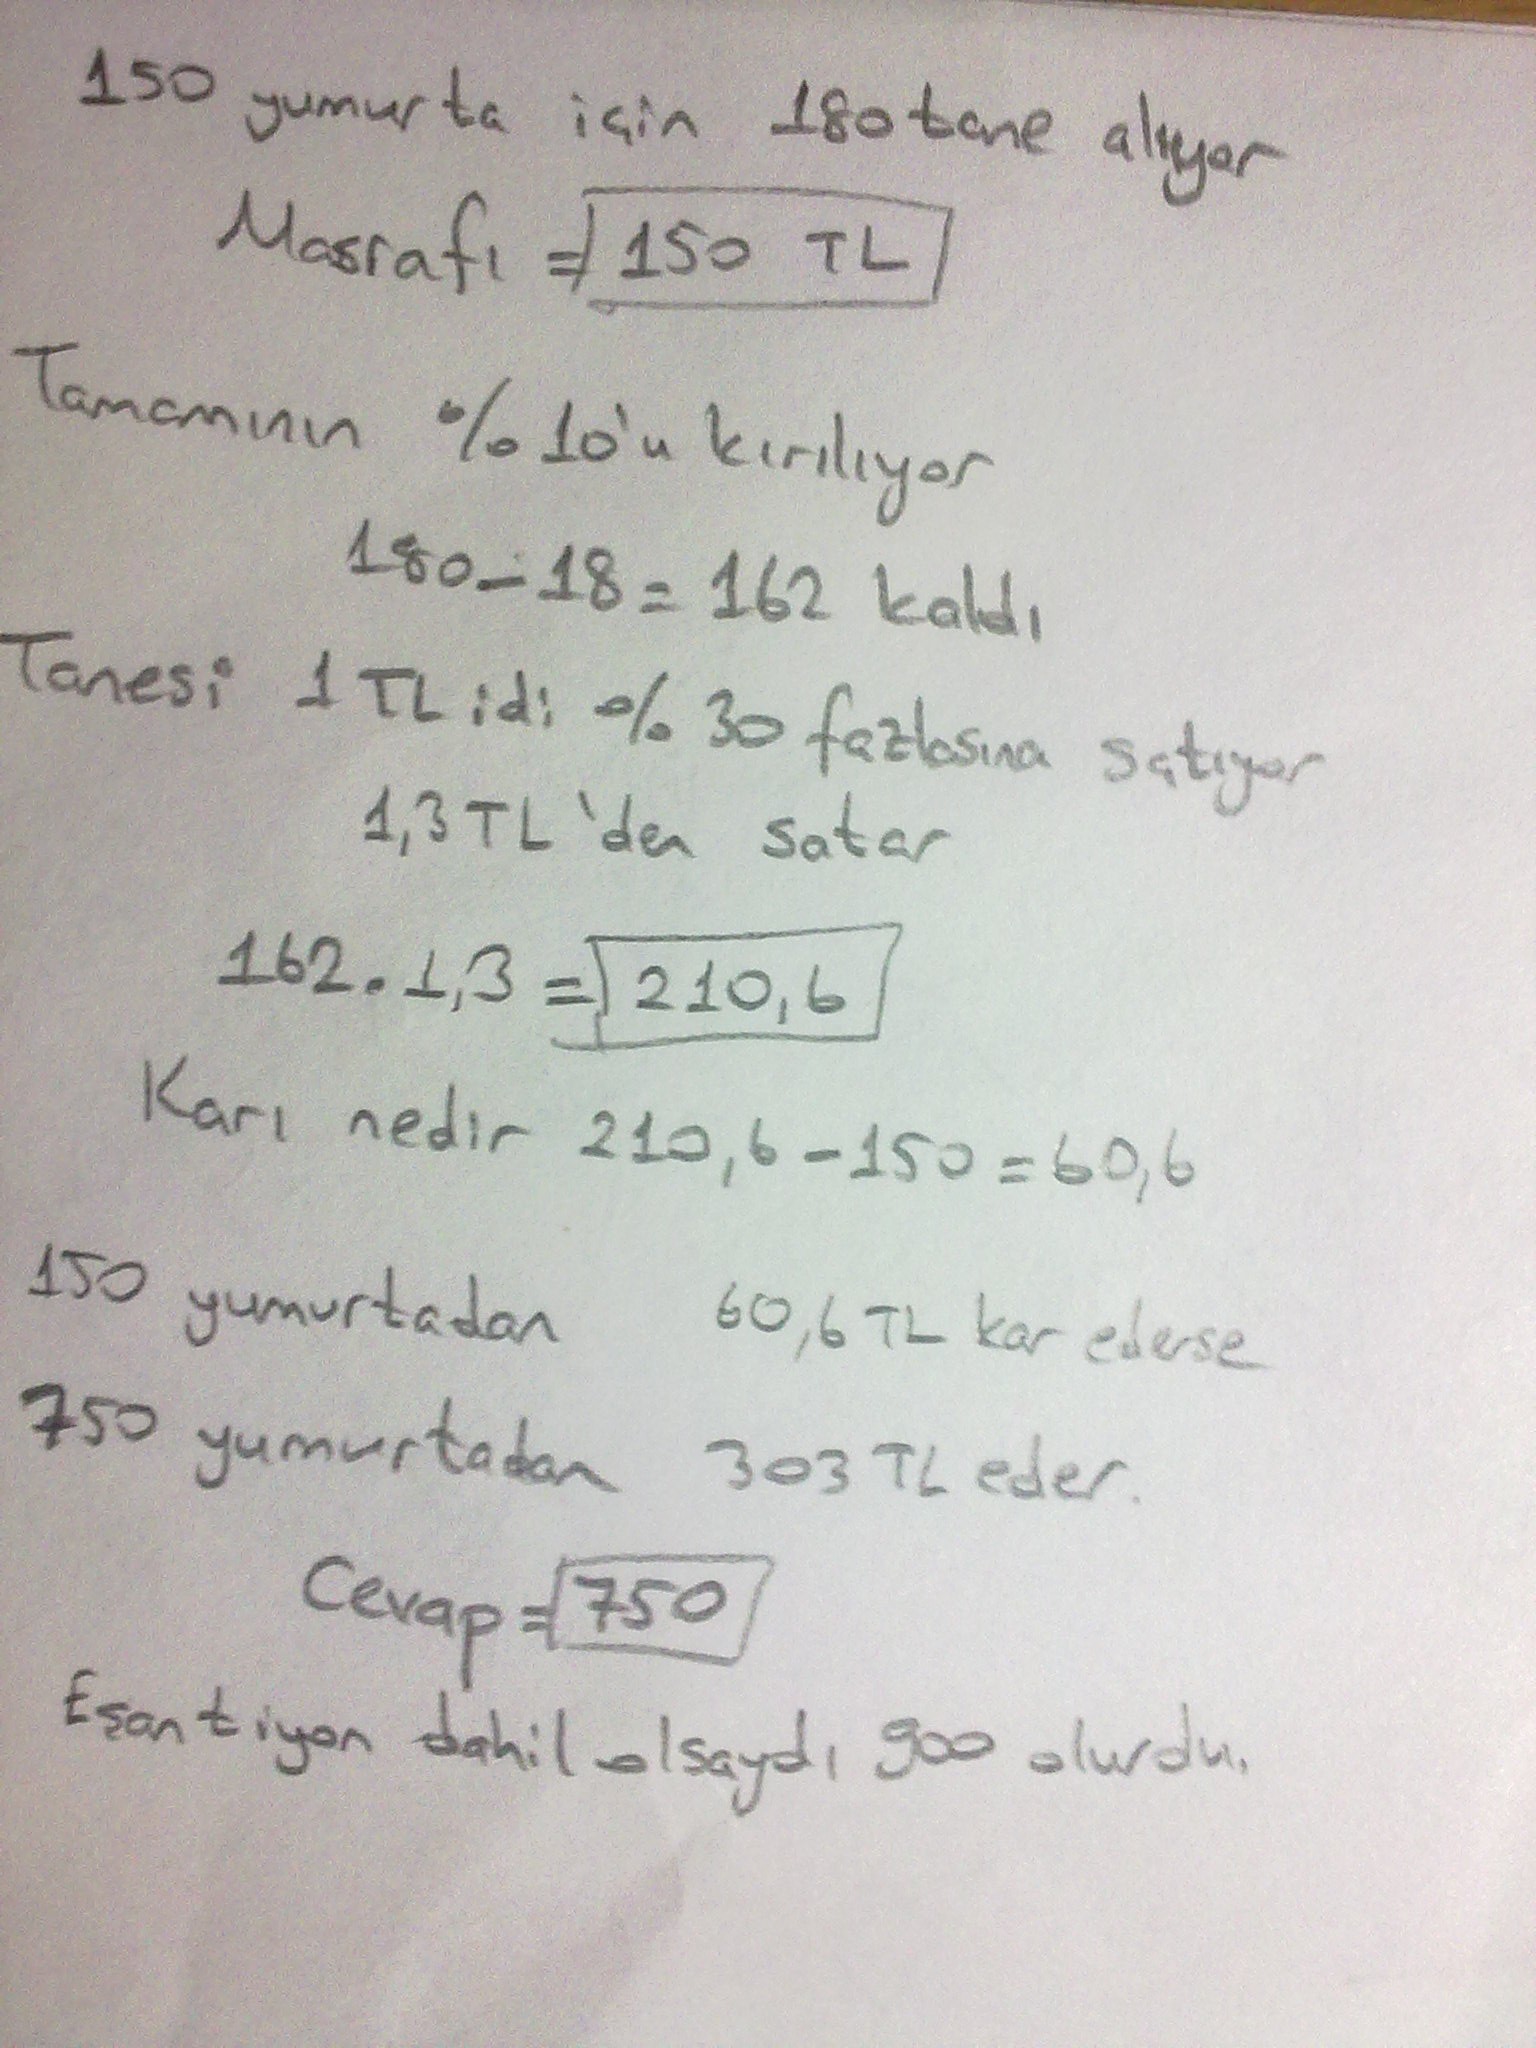 150 yumurta için 180 tane alıyor
Masrafı = 150 TL
Tamamının %10'u kırılıyor
180-18 = 162 kaldı
Tanesi 1 TL idi %30 fazlasına satıyor
1,3 TL'den satar
162.1,3 = 210,6
Karı nedir 210,6-150=60,6
150 yumurtadan 60,6 TL kar ederse
750 yumurtadan 303 TL eder.
Cevap = 750
Eşantiyon dahil olsaydı 900 olurdu.